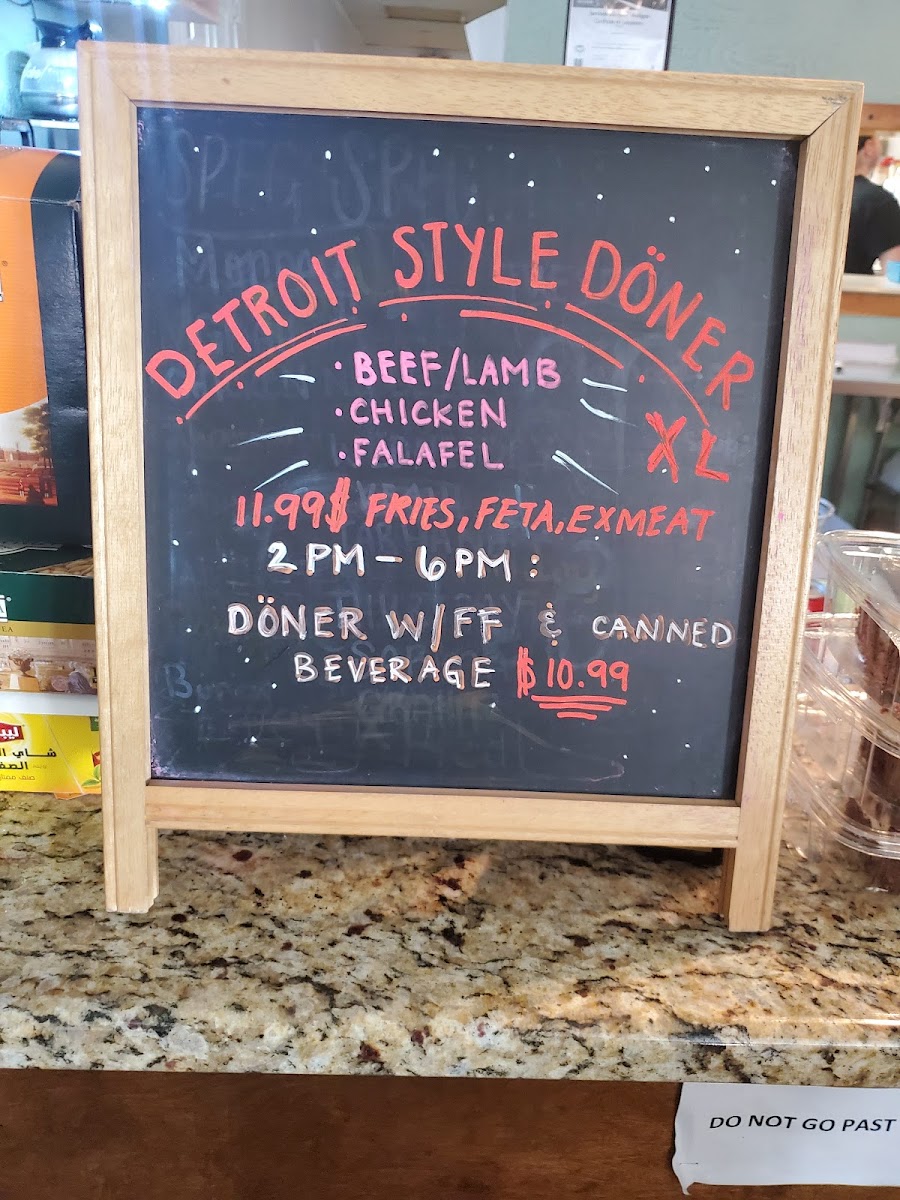 DETROIT STYLE DÖNER
XL
· BEEF/LAMB
· CHICKEN
· FALAFEL
11.99$ FRIES, FETA, EXMEAT
2 PM - 6 PM :
DÖNER W/FF & CANNED
BEVERAGE $10.99
شاي
DO NOT GO PAST